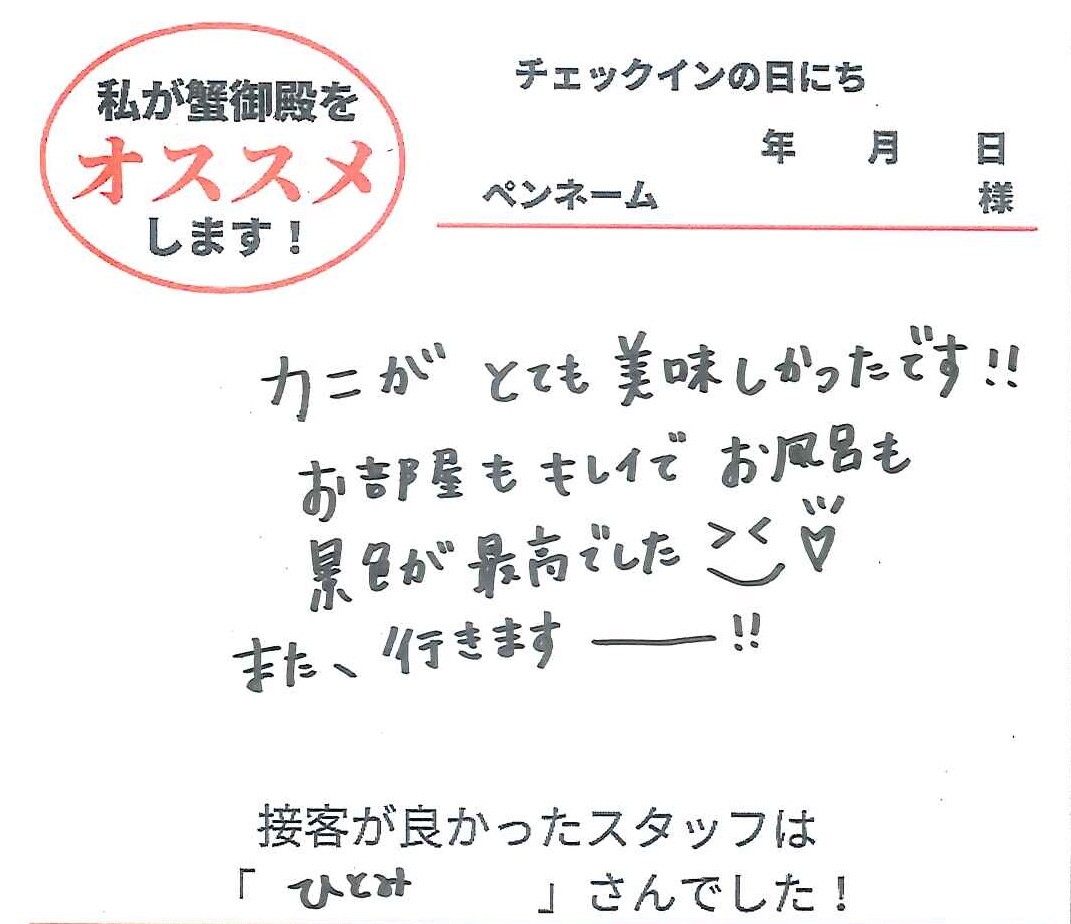 私が蟹御殿を
オススメ
します！
チェックインの日にち
年 月 日
ペンネーム 様
カニが とても 美味しかったです!!
お部屋も キレイで お風呂も
景色が 最高でした
また、行きます ー !!
接客が良かったスタッフは
「 ひとみ 」さんでした！